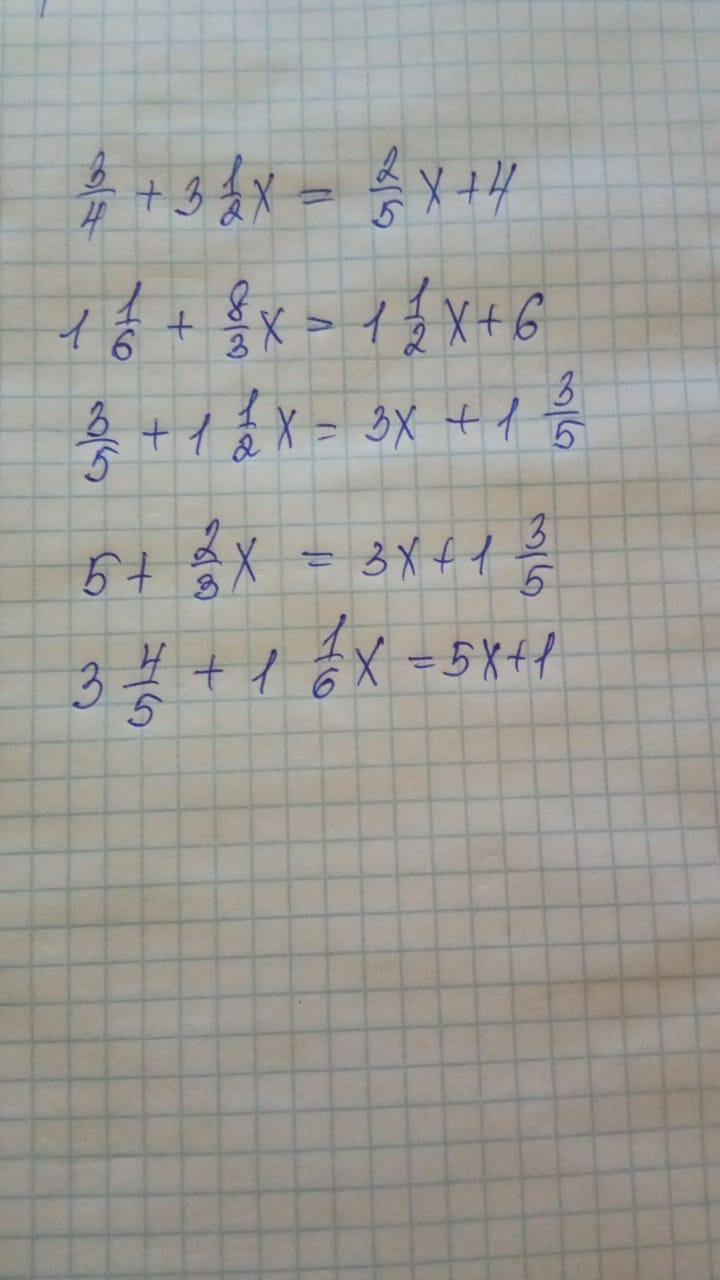 3/4 + 3 1/2 x = 2/5 x + 4
1 1/6 + 8/3 x = 1 1/2 x + 6
3/5 + 1 1/2 x = 3x + 1 3/5
5 + 2/3 x = 3x + 1 3/5
3 4/5 + 1 1/6 x = 5x + 1